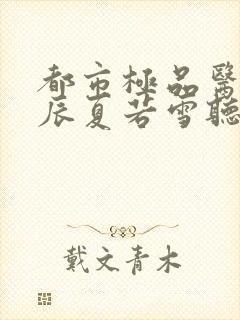 都市極品醫
辰夏若雪聽
戴文青木